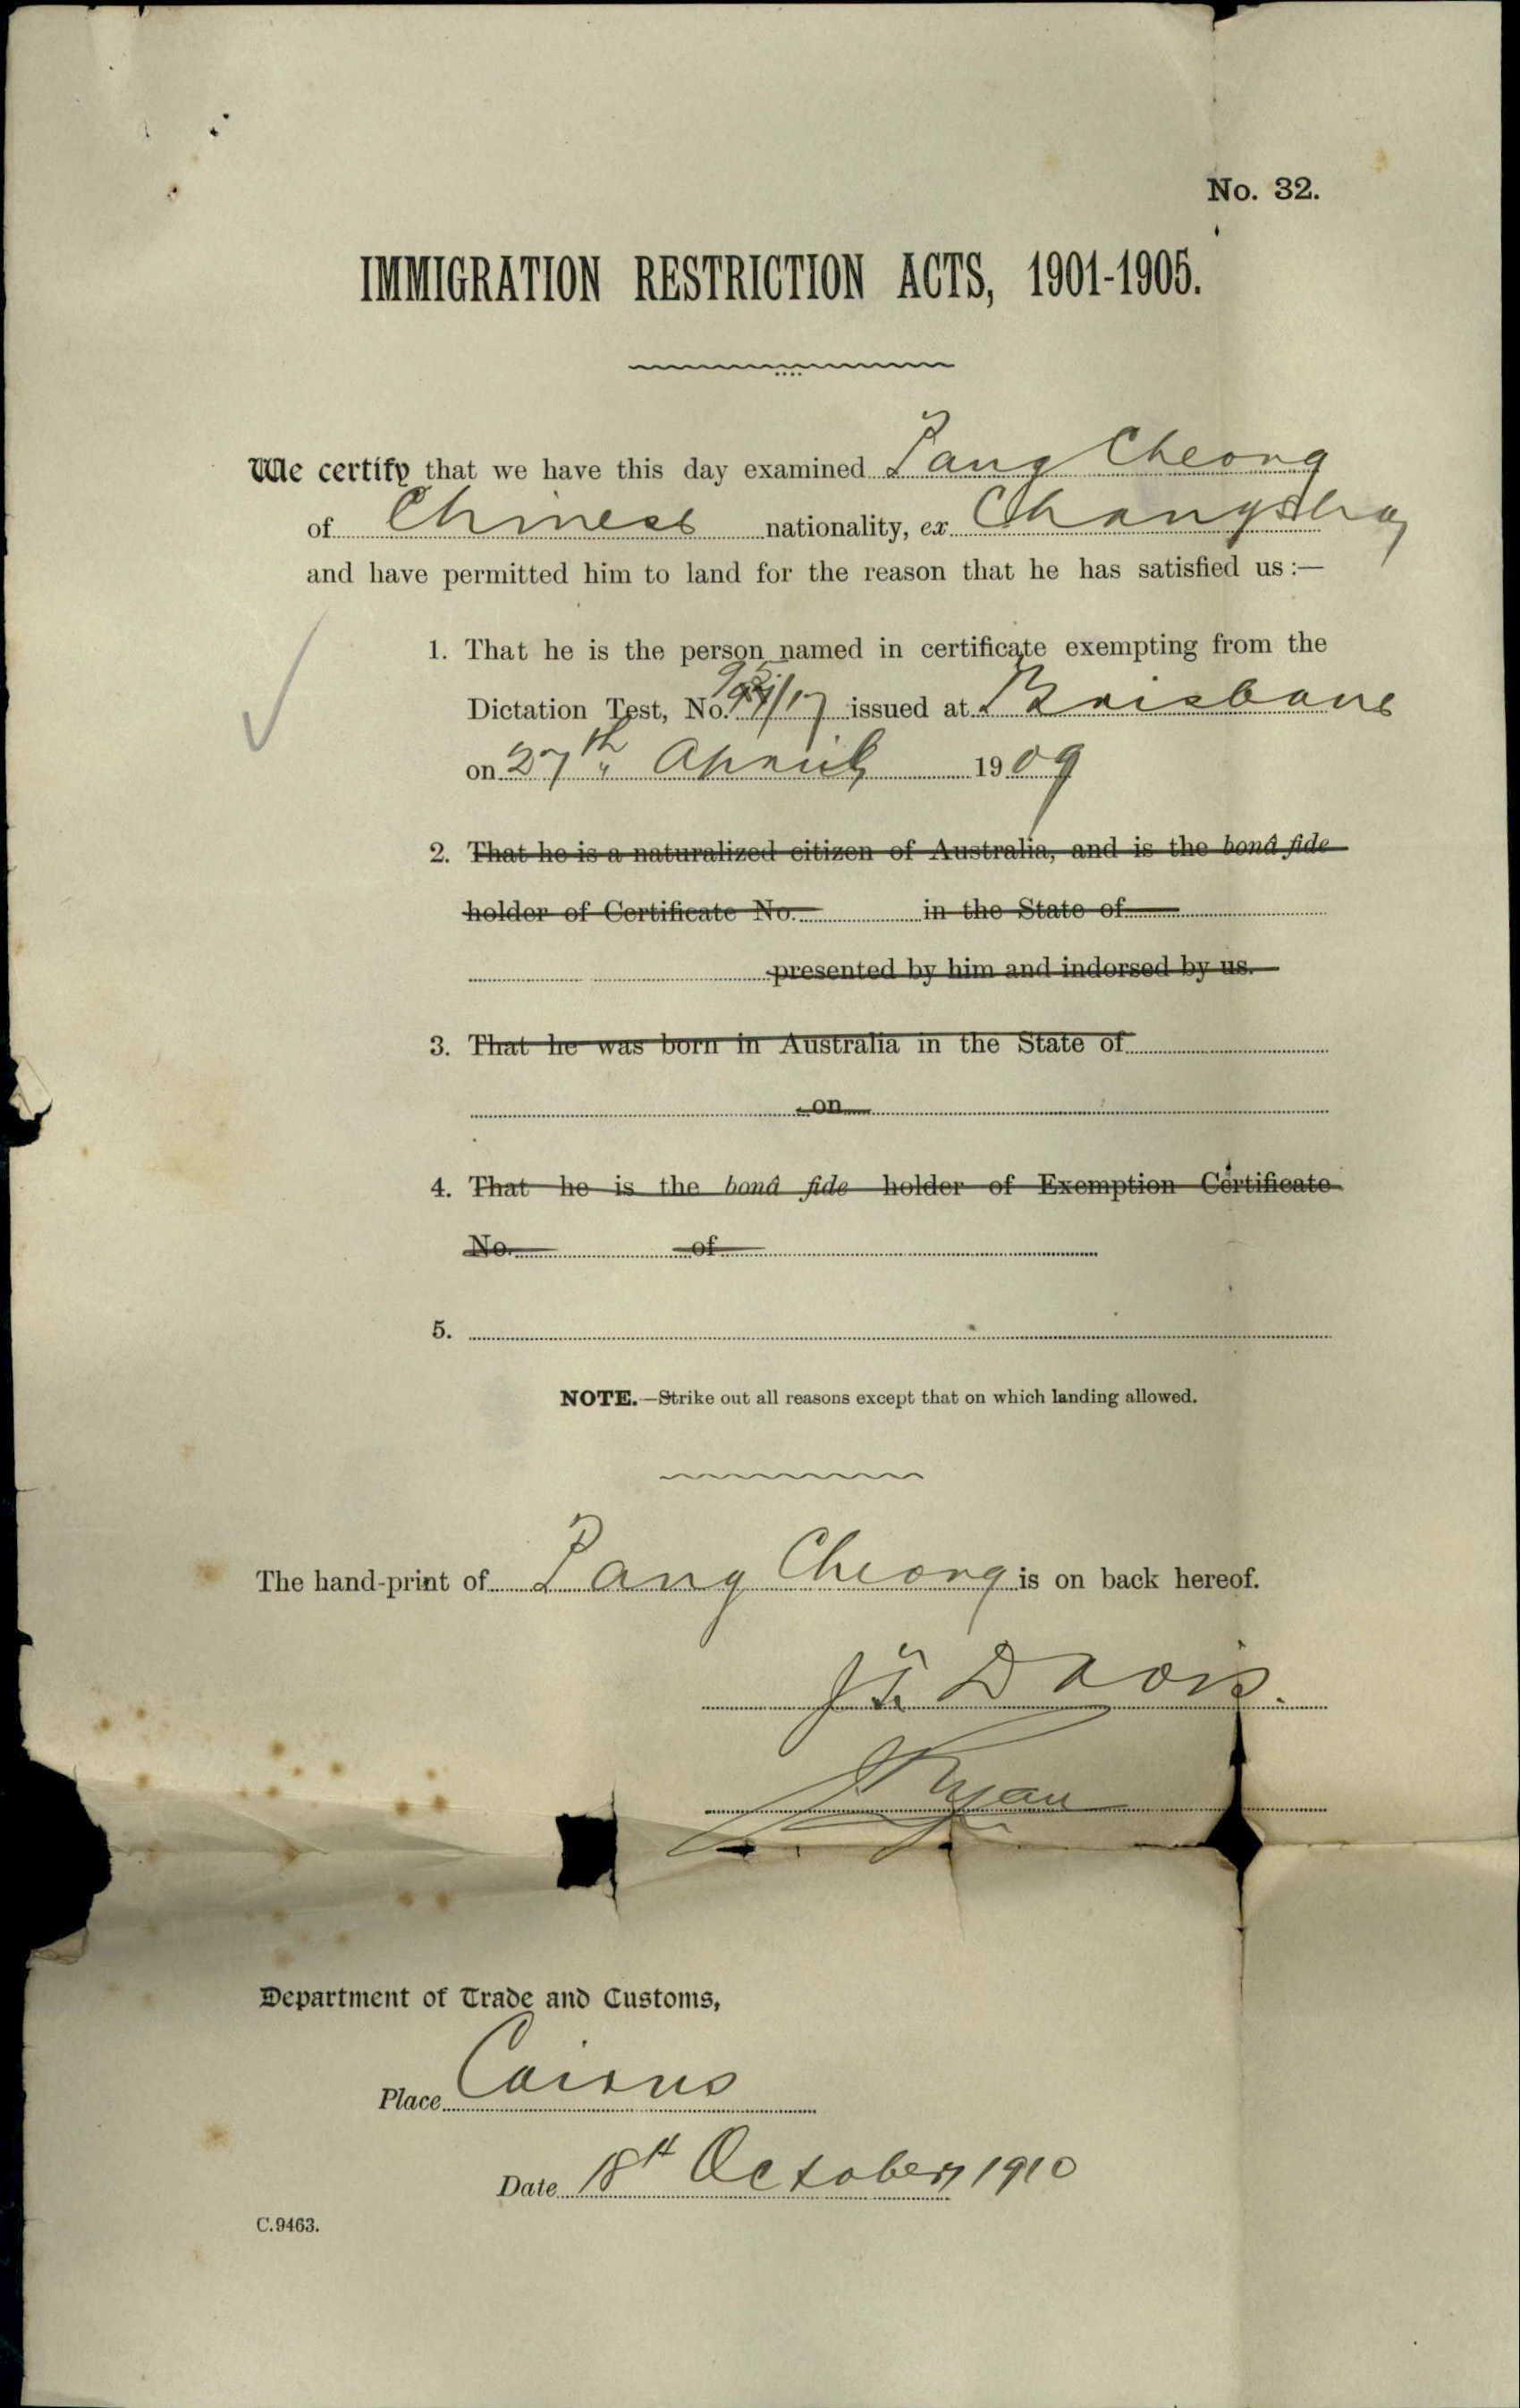 No. 32.
IMMIGRATION RESTRICTION ACTS, 1901-1905.
We certify that we have this day examined Pang Cheong
of Chinese nationality, ex Changsha
and have permitted him to land for the reason that he has satisfied us :—
1. That he is the person named in certificate exempting from the
Dictation Test, No. /17 issued at Brisbane
on 27th April 1909
2. That he is a naturalized citizen of Australia, and is the bonâ fide
holder of Certificate No. in the State of
presented by him and indorsed by us.
3. That he was born in Australia in the State of
on
4. That he is the bonâ fide holder of Exemption Certificate
No. of
5.
NOTE.—Strike out all reasons except that on which landing allowed.
The hand-print of Pang Cheong is on back hereof.
Davis.
J Ryan
Department of Trade and Customs,
Place Cairns
Date 18th October 1910
C.9463.